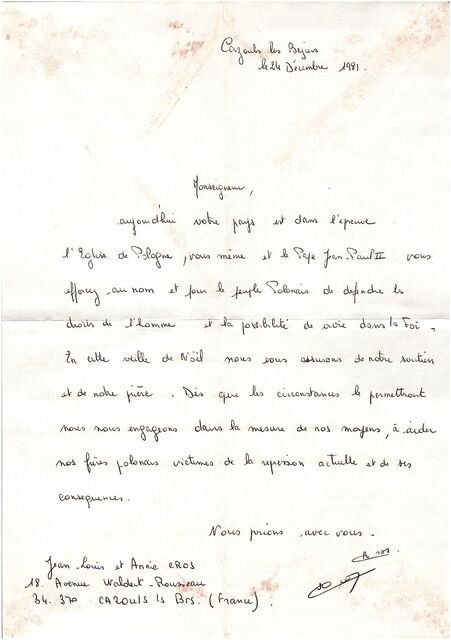 Cazouls les Beziers
le 24 Décembre 1981.
Monseigneur,
aujourd'hui votre pays est dans l'épreuve
l'Eglise de Pologne, vous même et le Pape Jean-Paul II vous
efforcez au nom et pour le peuple Polonais de defendre les
droits de l'homme et la possibilité de vivre dans la Foi.
En cette veille de Noël nous vous assurons de notre soutien
et de notre prière. Dès que les circonstances le permettront
nous nous engageons dans la mesure de nos moyens, à aider
nos frères polonais victimes de la repression actuelle et de ses
consequences.
Nous prions avec vous.
Jean-Louis et Annie CROS
18. Avenue Waldeck-Rousseau
34.370 CAZOULS ls Brs. (France).